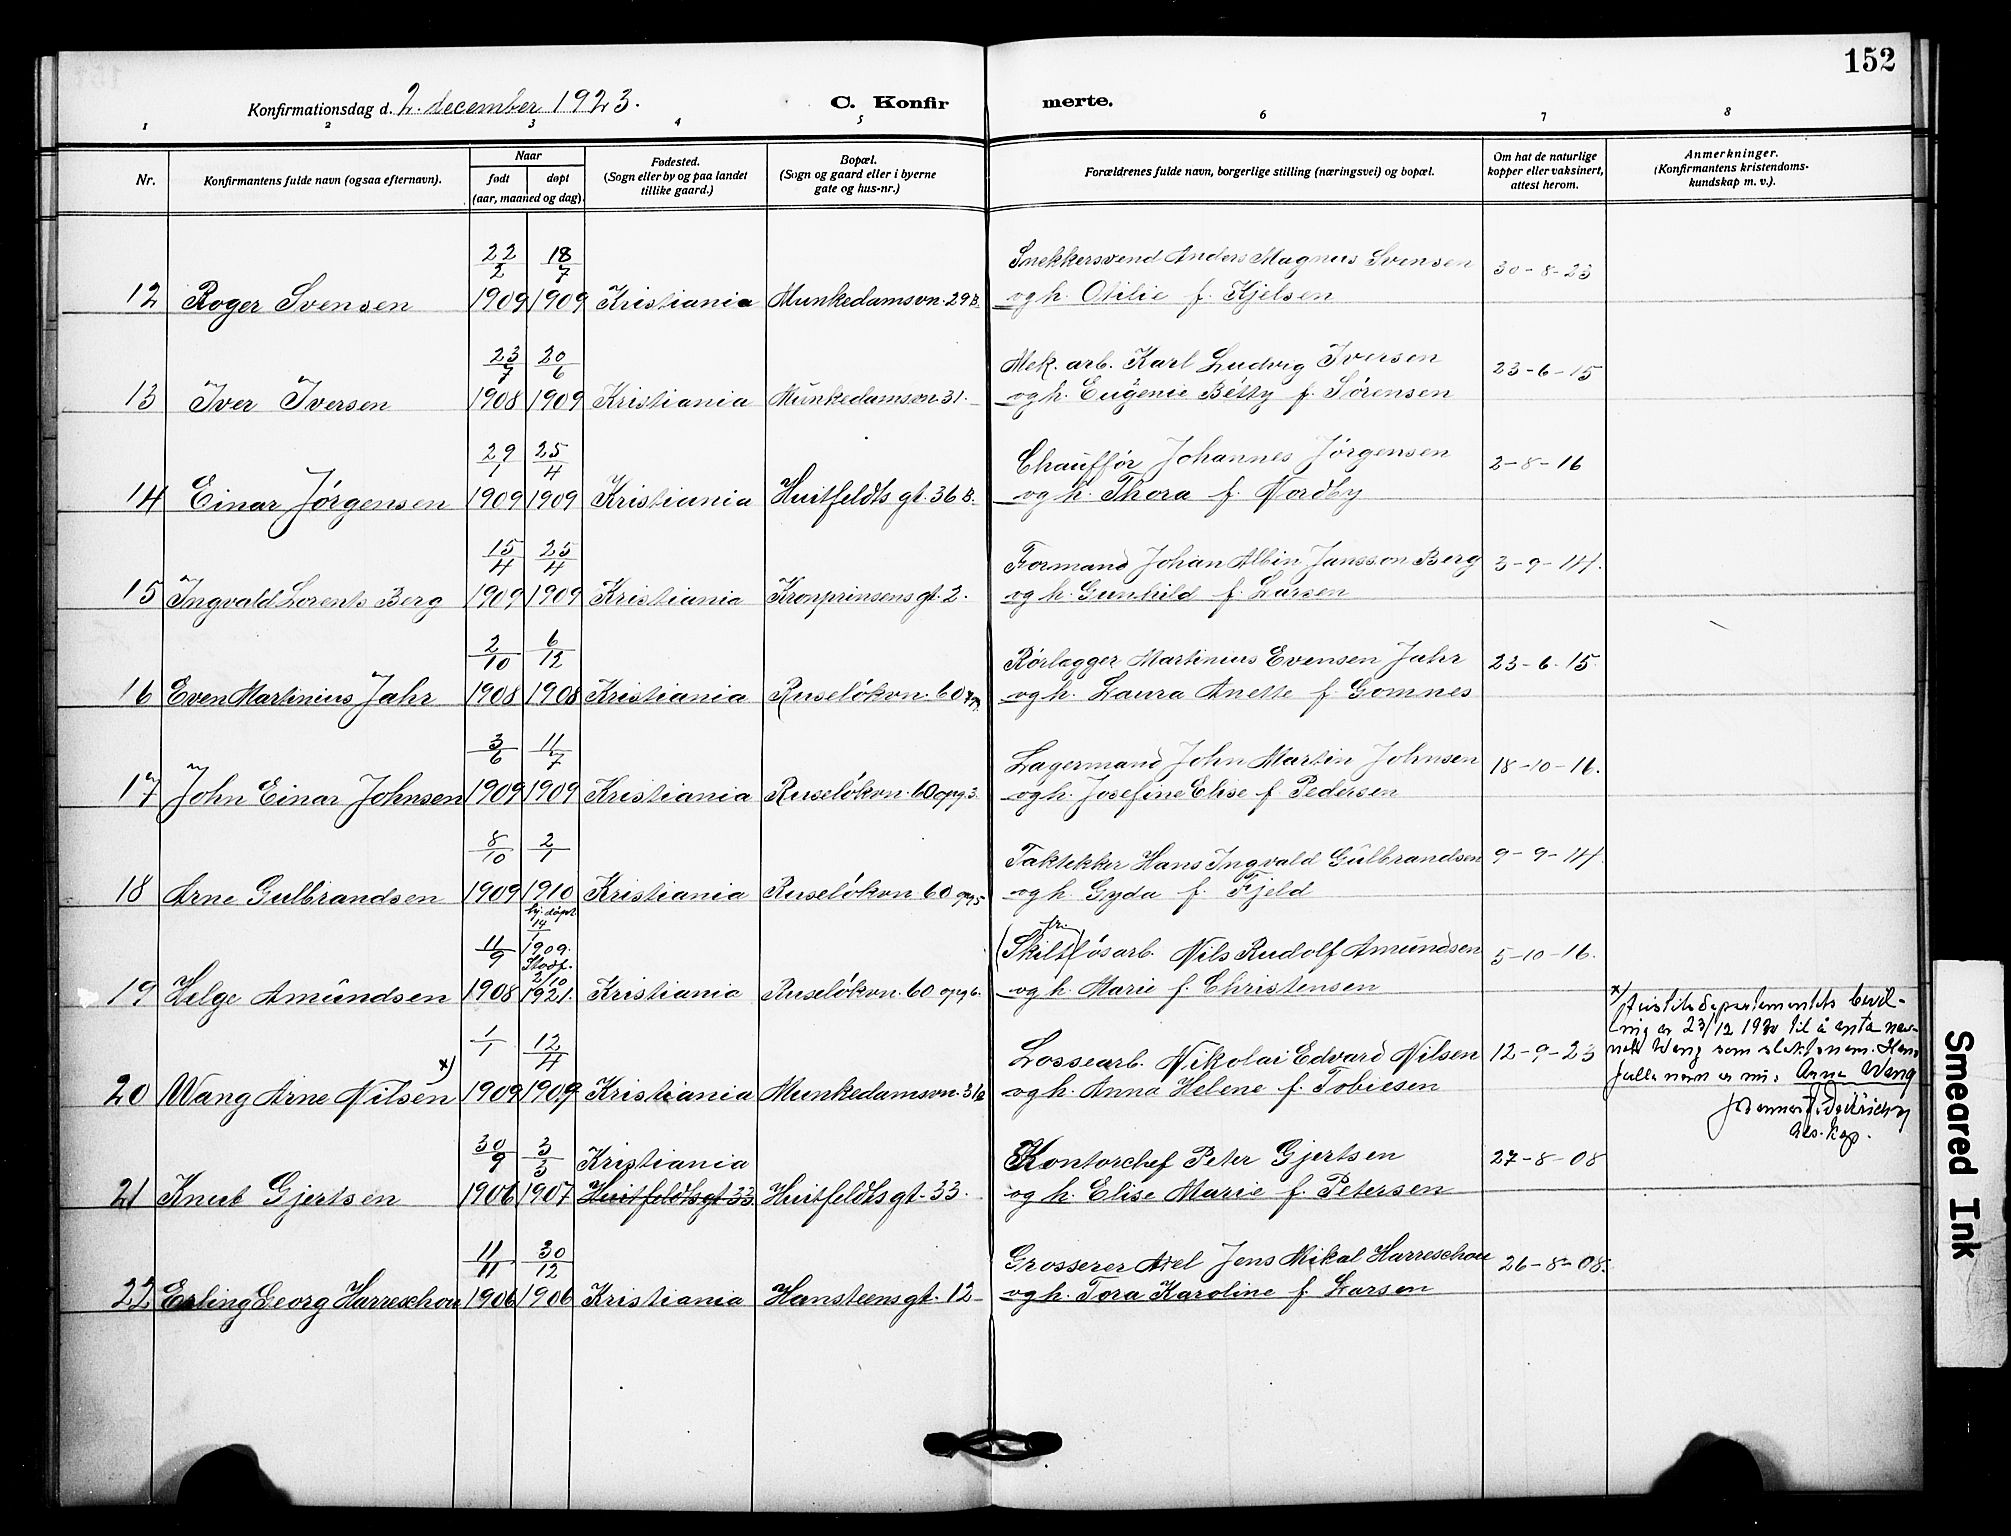 152
Konfirmationsdag d. 2. december 1923.
C. Konfir merte.
1 2 3 4 5 6 7 8
Nr.
Konfirmantens fulde navn (ogsaa efternavn).
Naar
født døpt
(aar, maaned og dag).
Fødested.
(Sogn eller by og paa landet
tillike gaard.)
Bopæl.
(Sogn og gaard eller i byerne
gate og hus-nr.)
Forældrenes fulde navn, borgerlige stilling (næringsvei) og bopæl.
Om hat de naturlige
kopper eller vaksinert,
attest herom.
Anmerkninger.
(Konfirmantens kristendoms-
kundskap m. v.).
22/2 18/7 Snekkersvend Anders Magnus Svensen 30-8-23
12 Roger Svensen 1909 1909 Kristiania Munkedamsvn. 29B. og h. Otilie f. Kjelsen
23/7 20/6 Mek. arb. Karl Ludvig Iversen 23-6-15
13 Iver Iversen 1908 1909 Kristiania Munkedamsvn 31. og h. Eugenie Betty f. Sørensen
29/1 25/4 Chauffør Johannes Jørgensen 2-8-16
14 Einar Jørgensen 1909 1909 Kristiania Huitfeldts gt. 36 B. og h. Thora f. Nordby
15/4 25/4 Formand Johan Albin Jansson Berg 3-9-14.
15 Ingvald Lorents Berg 1909 1909 Kristiania Kronprinsens gt. 2. og h. Gunhild f. Larsen
2/10 6/12 Rørlægger Martinius Evensen Jahr 23-6-15
16 Even Martinius Jahr 1908 1908 Kristiania Ruseløkvn. 60 og h. Laura Anette f. Gomnes
3/6 11/7 Lagermand John Martin Johnsen 18-10-16.
17 John Einar Johnsen 1909 1909 Kristiania Ruseløkvn. 60 opg 3. og h. Josefine Elise f. Pedersen
8/10 2/1 Taktekker Hans Ingvald Gulbrandsen 9-9-14
18 Arne Gulbrandsen 1909 1910 Kristiania Ruseløkvn 60 opg 5 og h. Gyda f. Fjeld
hj. døpt
14/1
11/9 1909. (Skilt) fr. løsarb. Nils Rudolf Amundsen 5-10-16.
Stadf.
2/10
19 Helge Amundsen 1908 1921. Kristiania Ruseløkvn. 60 opg 6. og h. Marie f. Christensen
1/1 12/4 Lossearb. Nikolai Edvard Nilsen 12-9-23
20 Wang Arne Nilsen x) 1909 1909 Kristiania Munkedamsvn. og h. Anna Helene f. Tobiesen
x) Justitsdepartementets bevil-
ning av 23/12 19 til å anta nav-
net Wang som slektsnavn. Hans
fulle navn er nu: Arne Wang
res. kap.
30/9 3/3 Kristiania Kontorchef Peter Gjertsen 27-8-08
21 Knut Gjertsen 1906 1907 Huitfeldts gt 33. Huitfeldts gt. 33. og h. Elise Marie f. Petersen
11/11 30/12 Grosserer Axel Jens Mikal Harreschou 26-8-08.
22 Erling Georg Harreschou 1906 1906 Kristiania Hansteens gt. 12 og h. Tora Karoline f. Larsen
Smeared Ink